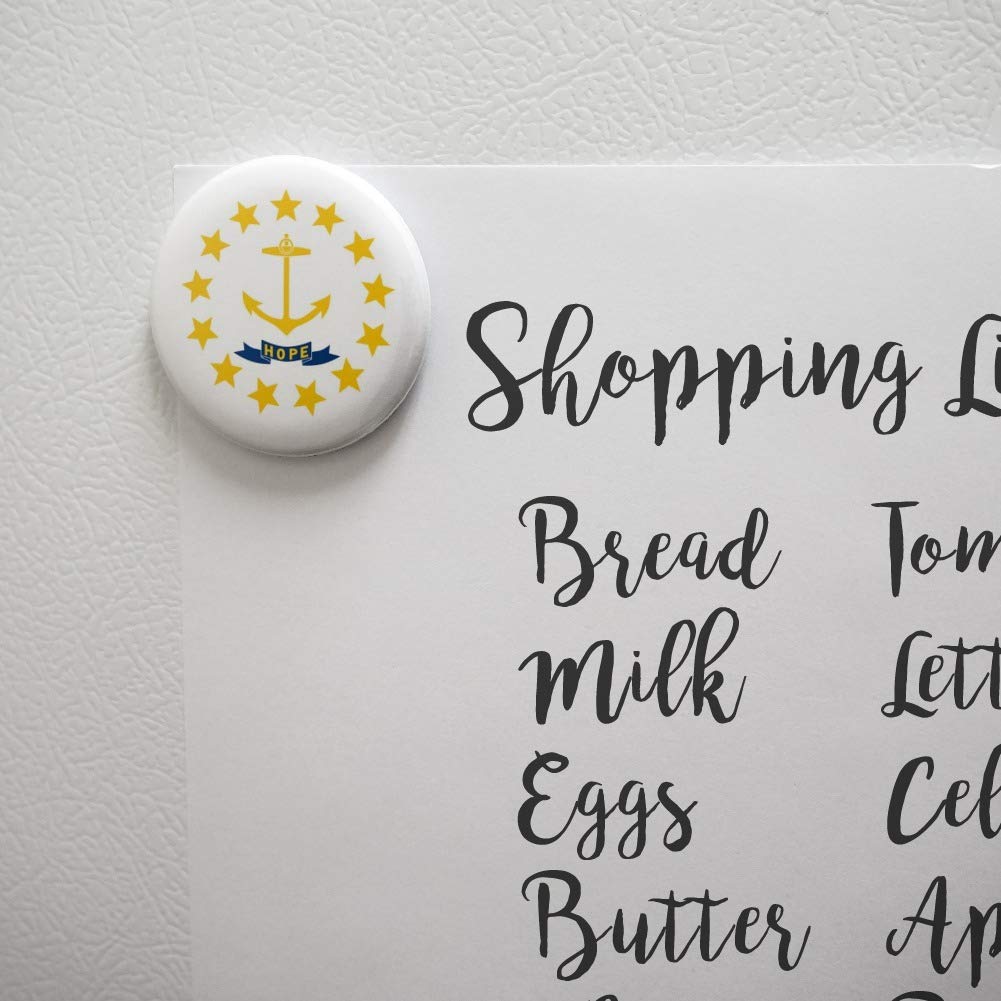 HOPE
Shopping Li
Bread Tom
Milk Lett
Eggs Cel
Butter Ap